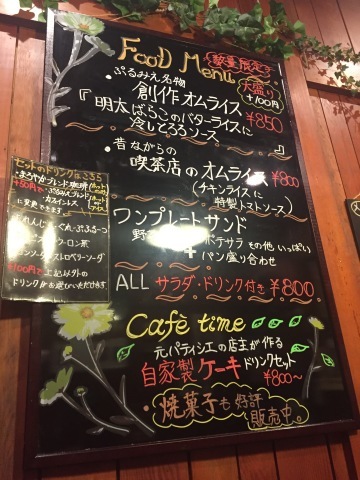 FooD Menu
数量限定
大盛り
+100円
ぷるみえ名物
創作オムライス
『明太ばらこのバターライスに ¥850
冷しとろろソース 』
昔ながらの
喫茶店のオムライス ¥800
(チキンライス&
特製トマトソース)
ワンプレートサンド
野菜
+
ポテサラ その他 いっぱい
パン盛り合わせ
ALL サラダ・ドリンク付き ¥800
Cafè time
元パティシエの店主が作る
自家製ケーキ ドリンクセット
¥800~
・焼菓子も好評
販売中。
セットのドリンクはこちら
・まろやかブレンド珈琲
+50円で
ぷるみえブレンド
カフェオレ
に変更できます
ウーロン茶
ストロベリーソーダ
+100円で 上記以外の
ドリンクがお選びいただけます